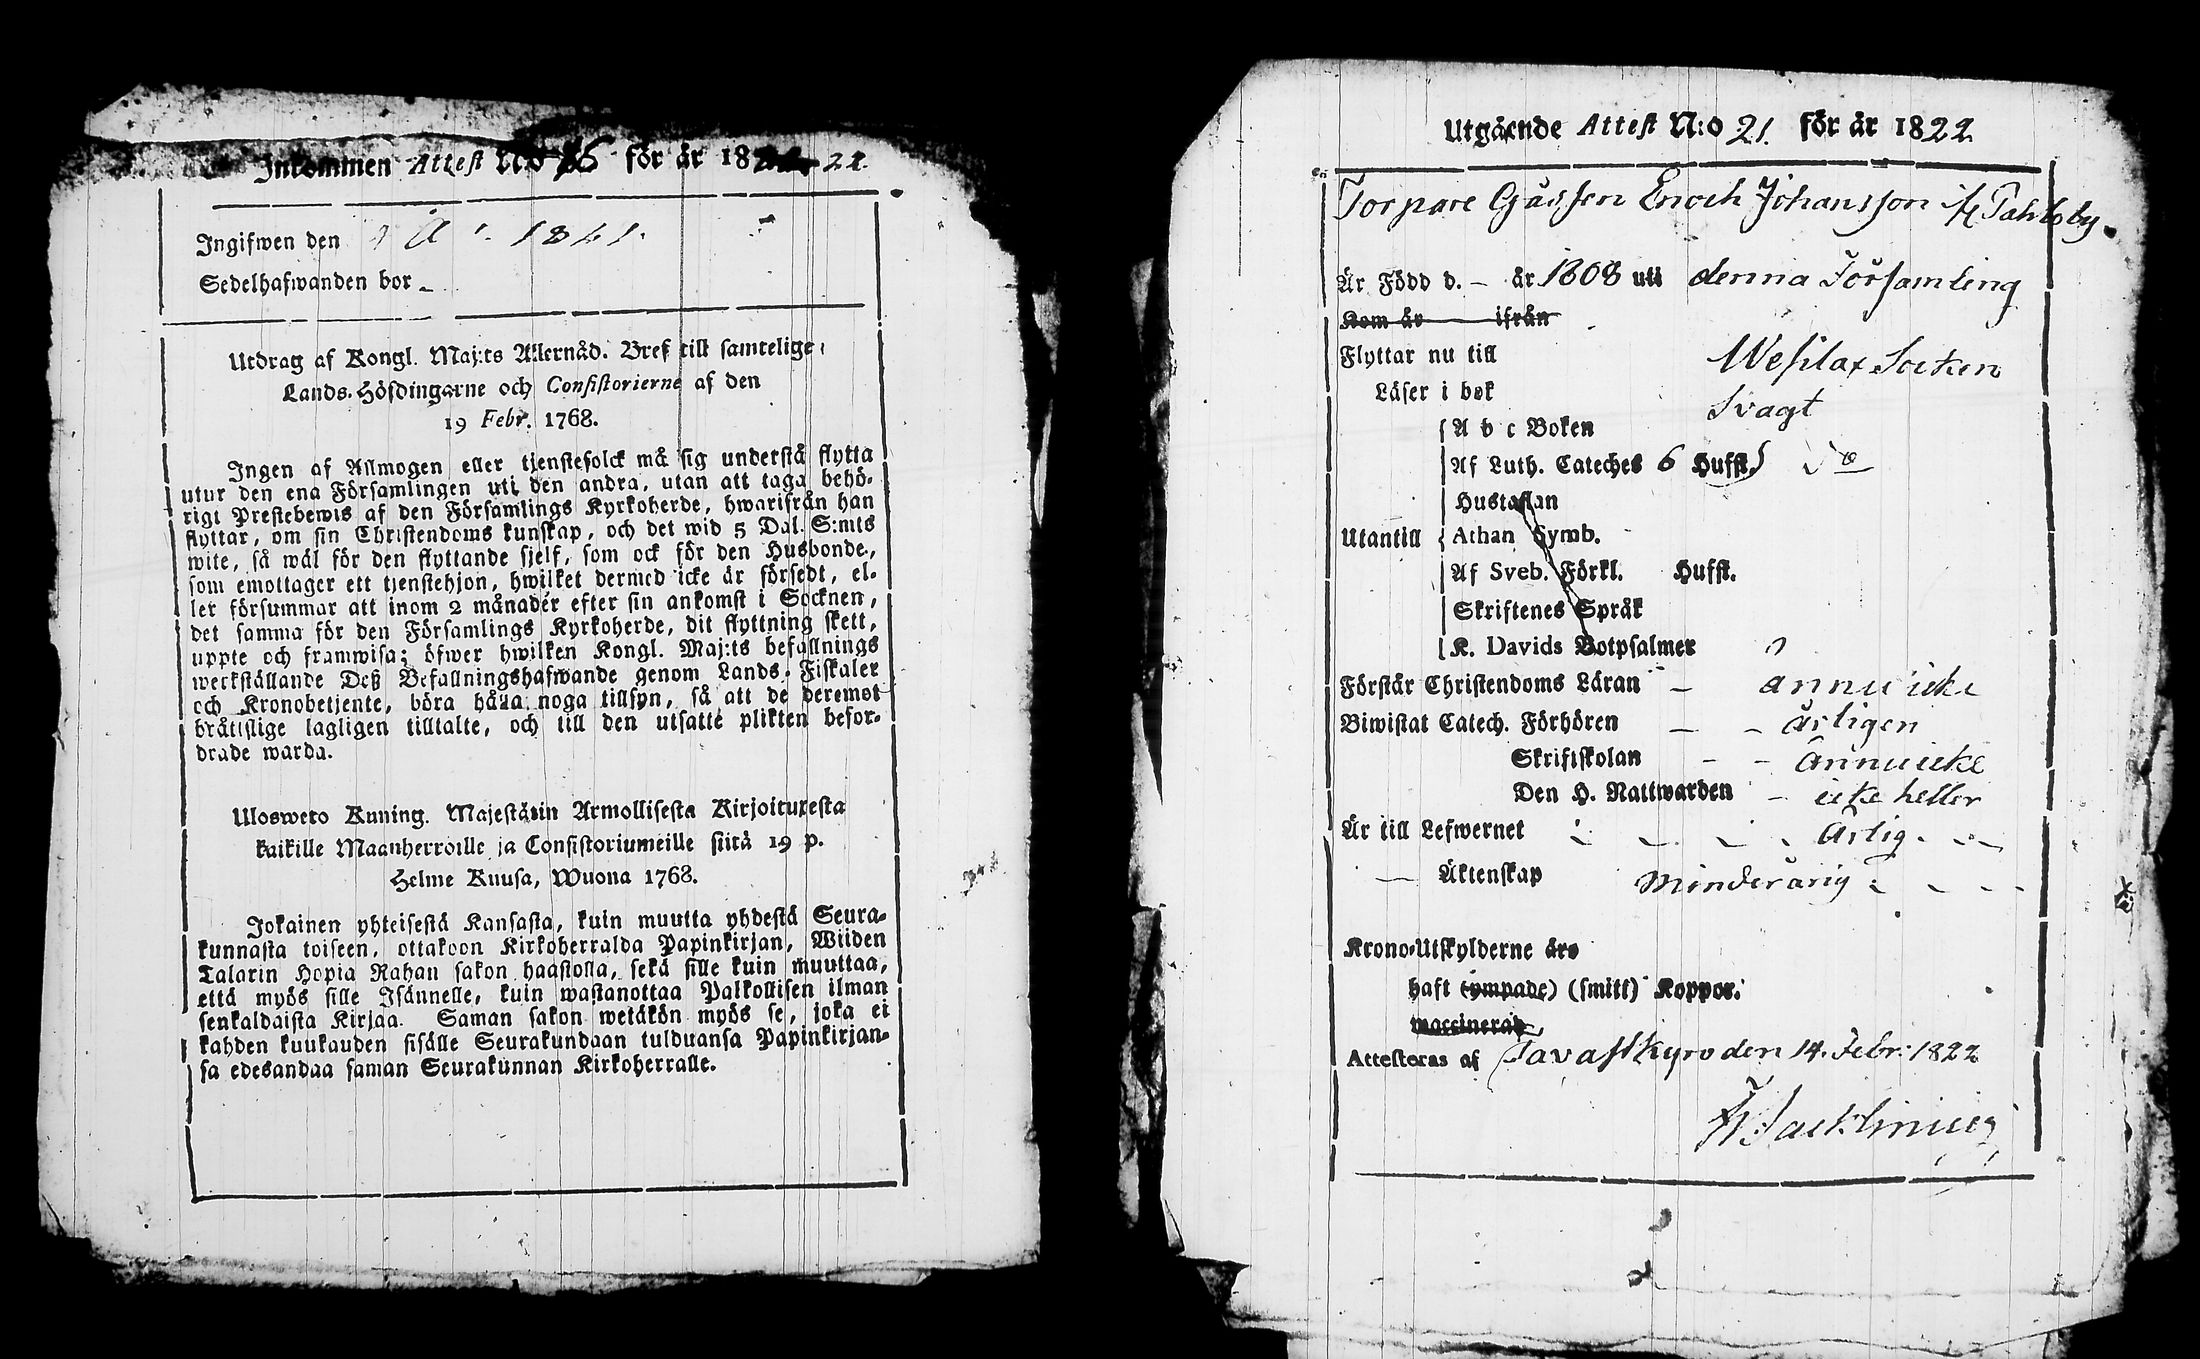 Inkommen Attest No 26 för år 18 22
Ingifwen den
Sedelhafwanden bor
Utdrag af Kongl. Maj:ts Allernåd. Bref till samtelige
Lands-Höfdingarne och Consistorierne af den
19 Febr. 1768.
Ingen af Allmogen eller tjenstefolck må sig understå flytta
utur den ena Församlingen uti den andra, utan att taga behö-
rigt Prestebewis af den Församlings Kyrkoherde, hwarifrån han
flyttar, om sin Christendoms kunskap, och det wid 5 Dal. S:mts
wite, så wäl för den flyttande sjelf, som ock för den Husbonde,
som emottager ett tjenstehjon, hwilket dermed icke är försedt, el-
ler försummar att inom 2 månader efter sin ankomst i Socknen,
det samma för den Församlings Kyrkoherde, dit flyttning skett,
uppte och framwisa; öfwer hwilken Kongl. Maj:ts befallnings
werkställande Deß Befallningshafwande genom Lands-Fiskaler
och Kronobetjente, böra hålla noga tillsyn, så att de deremot
bråttslige lagligen tilltalte, och till den utsatte plikten befor-
drade warda.
Ulosweto Kuning. Majestätin Armollisesta Kirjoituxesta
kaikille Maanherroille ja Consistoriumeille siitä 19 p.
Helme Kuusa, Wuona 1768.
Jokainen yhteisestä Kansasta, kuin muutta yhdestä Seura-
kunnasta toiseen, ottakoon Kirkoherralda Papinkirjan, Wiiden
Talarin Hopia Rahan sakon haastolla, sekä sille kuin muuttaa,
että myös sille Isännelle, kuin wastanottaa Palkollisen ilman
senkaldaista Kirjaa. Saman sakon wetäkön myös se, joka ei
kahden kuukauden sisälle Seurakundaan tulduansa Papinkirjan-
sa edesandaa saman Seurakunnan Kirkoherralle.
Utgående Attest N:o 21. för år 1822
Torpare Gåssen Enoch Johansson
Är Född d. – år 1808 uti denna Församling
Kom år ifrån
Flyttar nu till Wesilax Socken
Läser i bok Svagt
A b c Boken
Af Luth. Cateches 6 Hufst.
Hustaflan
Utantill Athan Symb.
Af Sveb. Förkl. Hufst.
Skriftenes Språk
K. Davids Botpsalmer
Förstår Christendoms Läran – ännu icke
Biwistat Catech. Förhören – – årligen
Skriftskolan – – ännu icke
Den H. Nattwarden – icke heller
Är till Lefwernet Ärlig
— Äktenskap Minderårig
Krono-Utskylderne års
haft (ympade) (smitt) Koppor.
waccinerad
Attesteras af Tavastkyro den 14. Febr: 1822